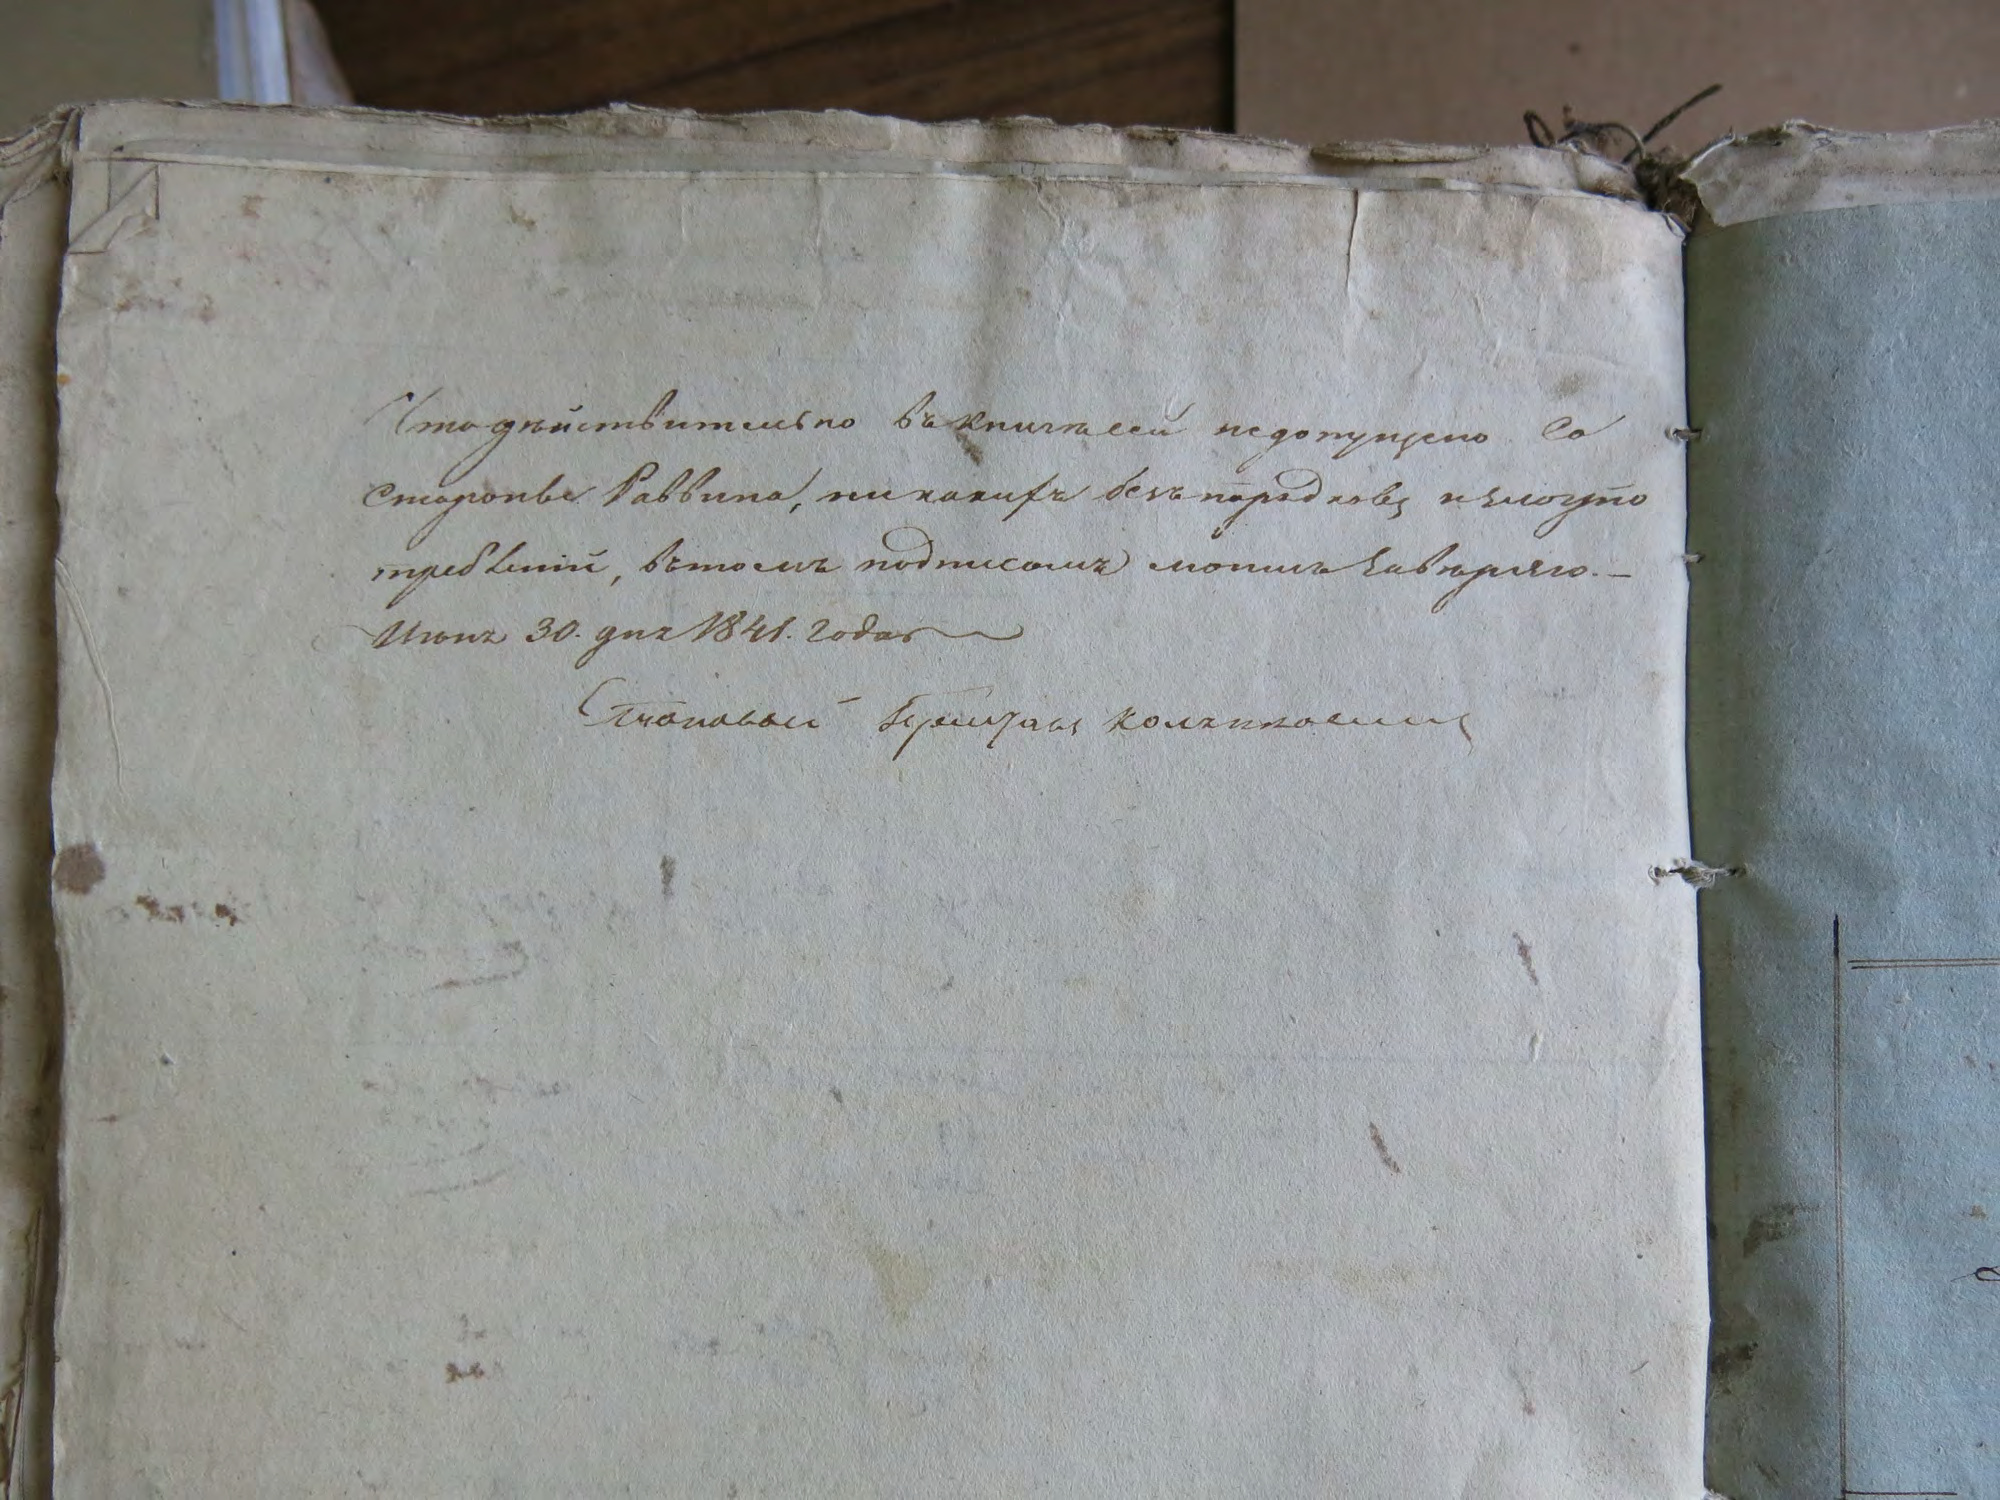 Что действительно въ книгѣ сей недопущено со
стороны Раввина, никакихъ безпорядковъ и злоупо
требленій, въ томъ подписомъ моимъ завѣряю. —
Июня 30. дня 1841. Года
Становой